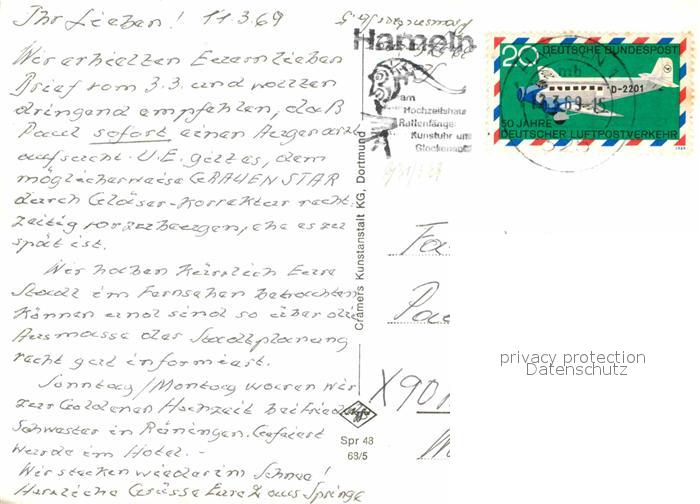 Ihr Lieben! 11.3.69
Wir erhielten Euern lieben
Brief vom 3.3. und wollten
dringend empfehlen, daß
Paul sofort einen Augenarzt
aufsucht. U.E. gilt es, dem
möglicherweise GRAUEN STAR
durch Gläser-Korrektur recht
zeitig vorzubeugen, ehe es zu
spät ist.
Wir haben kürzlich Eure
Stadt im Fernsehen betrachten
können und sind so über die
Ausmasse der Stadtplanung
recht gut informiert.
Sonntag/Montag waren wir
zur Goldenen Hochzeit bei Frieda
Schwester in Gefeiert
wurde im Hotel. -
Wir stecken wieder im Schnee!
Herzliche Grüsse Eure 2 aus Springe
Hameln
am
Hochzeitshaus
Rattenfänger
Kunstuhr und
Glockenspiel
20 DEUTSCHE BUNDESPOST
D-2201
50 JAHRE
DEUTSCHER LUFTPOSTVERKEHR
1969
325
Cramers Kunstanstalt KG, Dortmund
Agfa
Spr 48
68/5
Fa
Pa
X901
privacy protection
Datenschutz